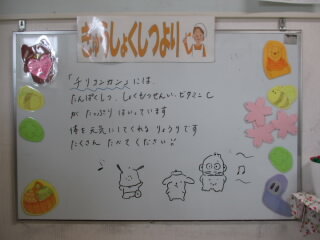 きゅうしょくしつより
「チリコンカン」には、
たんぱくしつ、しょくもつせんい、ビタミンC
が たっぷり はいっています
体を元気にしてくれる りょうりです
たくさん たべてください!!